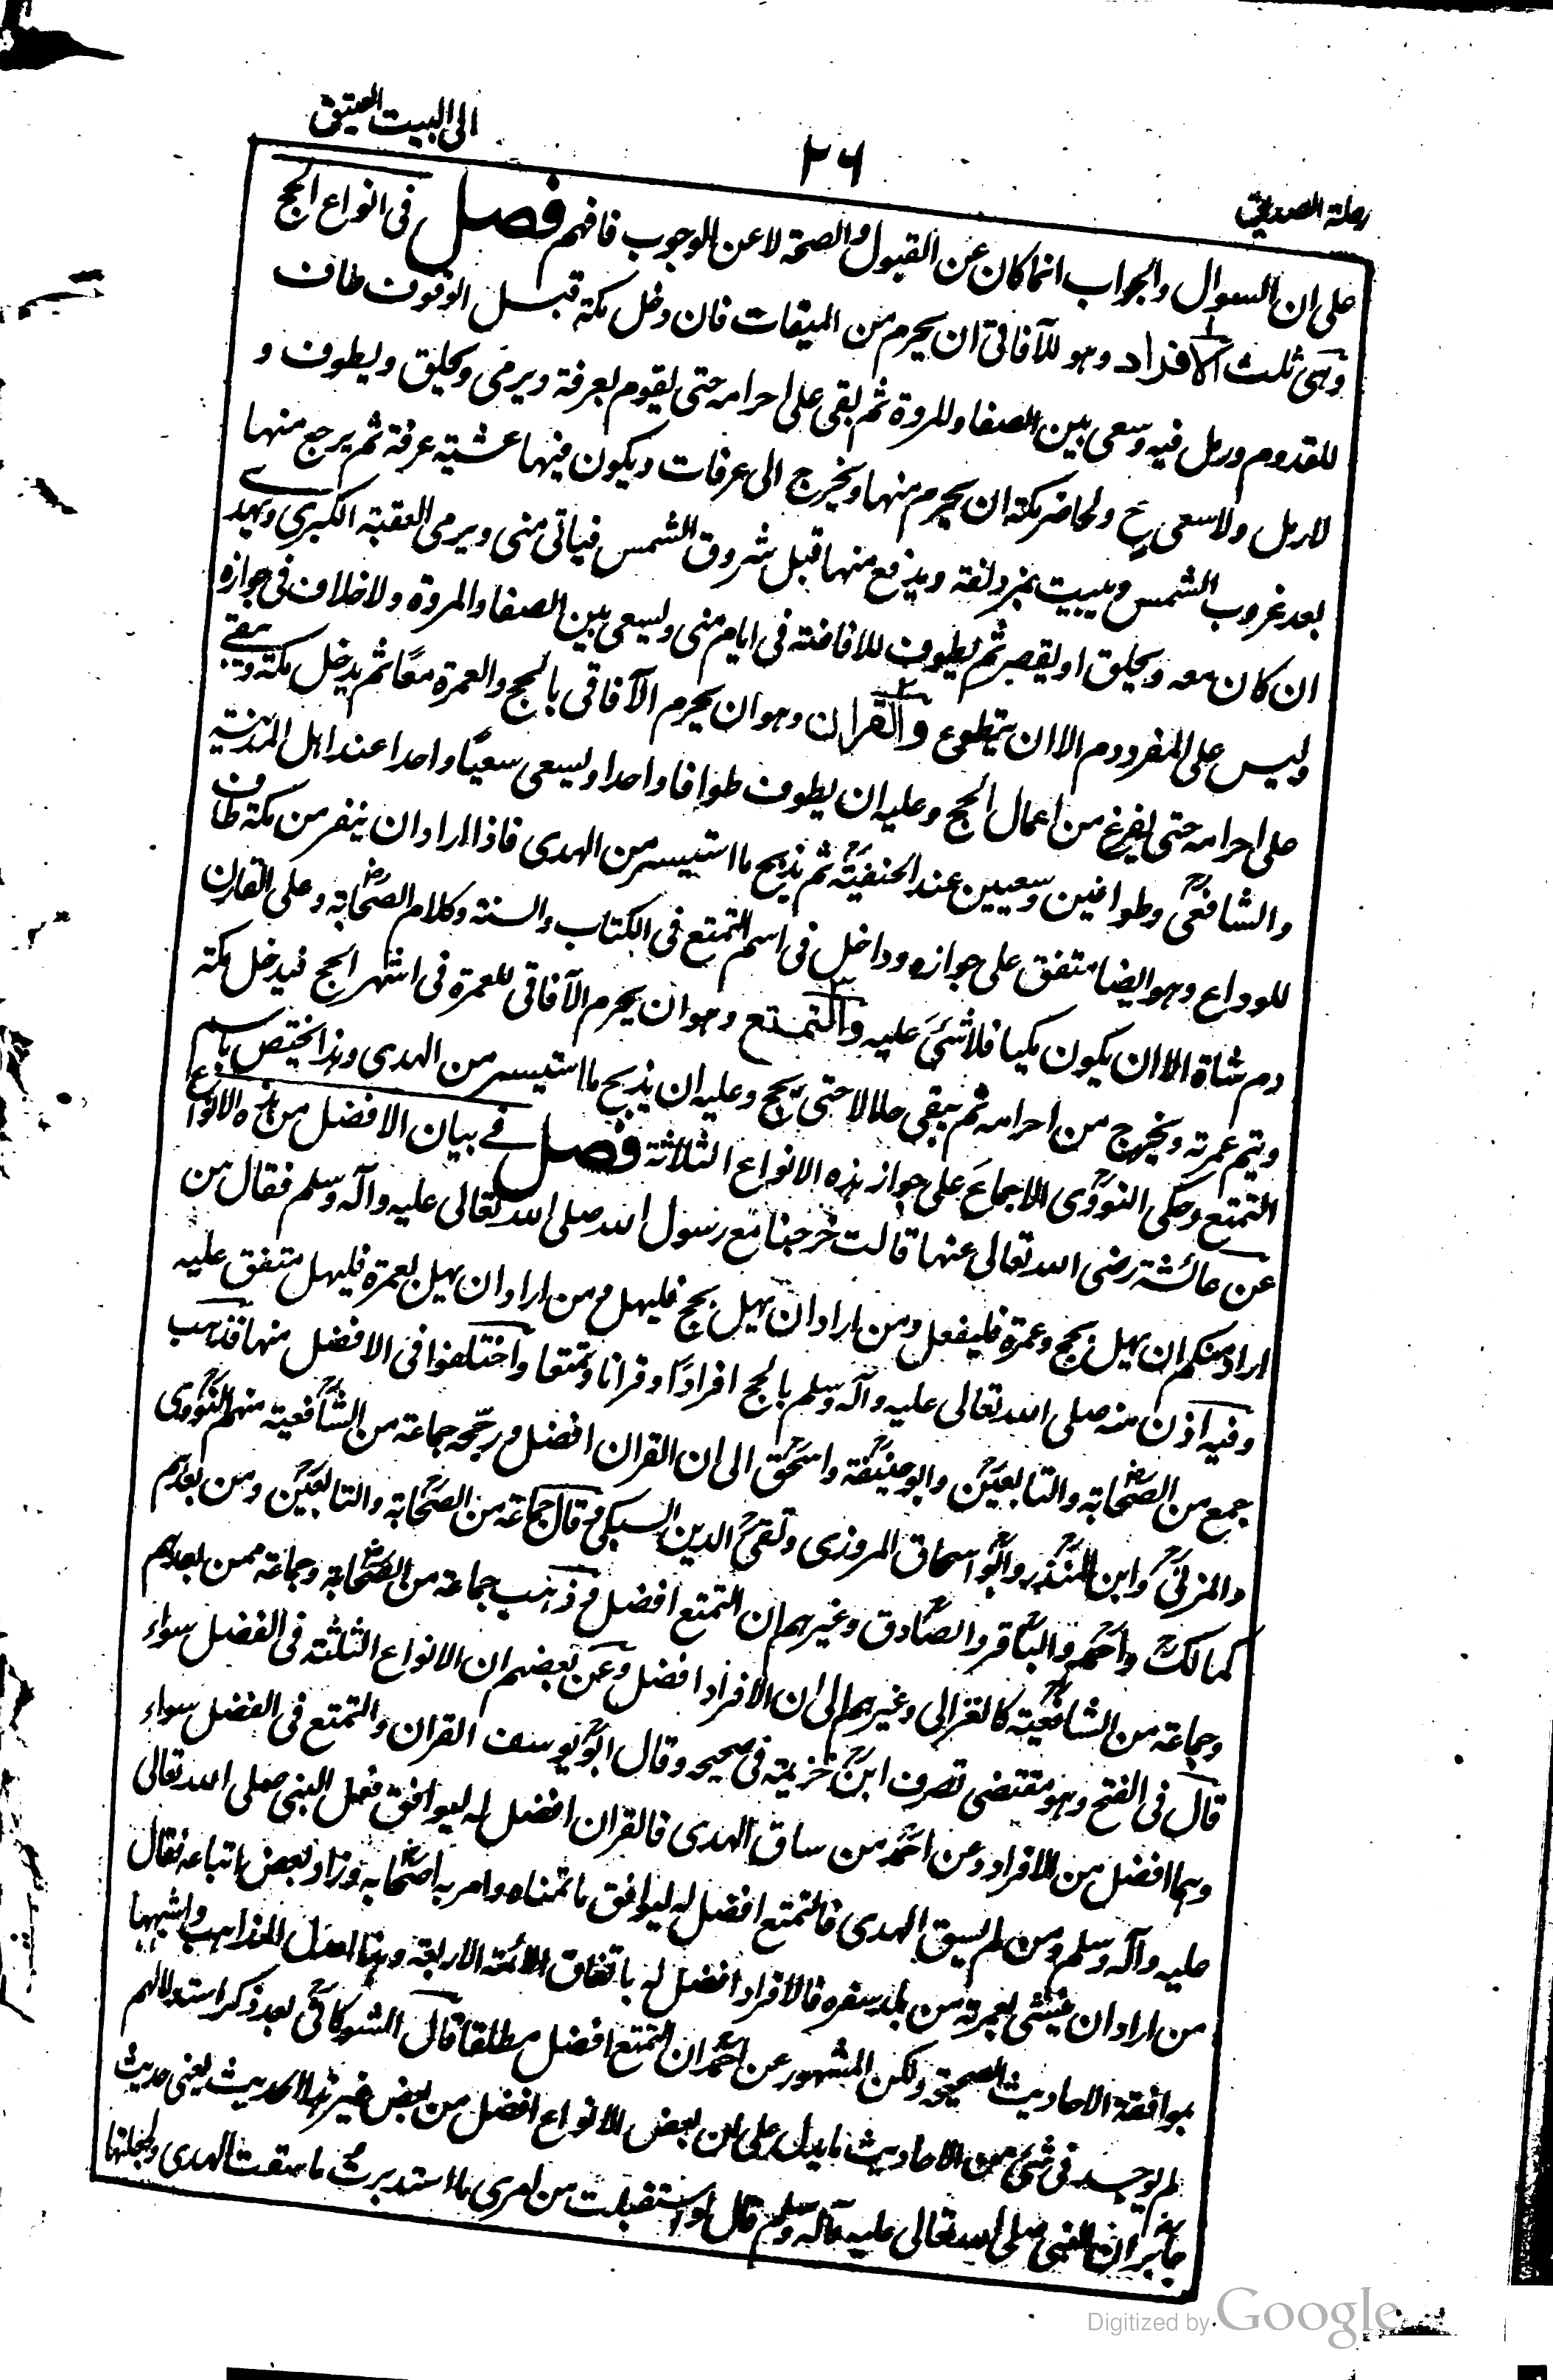 رحلة الصديق
٢٦
الى البيت العتيق
على ان السوال والجواب انما كان عن القبول والصحة لا عن الوجوب فافهم فصل فى انواع الحج
وهى ثلث الافراد وهو للآفاقى ان يحرم من الميقات فان دخل مكة قبل الوقوف طاف
للقدوم ورمل فيه وسعى بين الصفا والمروة ثم بقى على احرامه حتى يقوم بعرفة ويرمى ويحلق ويطوف و
لا رمل ولا سعى ح ولحاضر مكة ان يحرم منها ويخرج الى عرفات ويكون فيها عشية عرفة ثم يرجع منها
بعد غروب الشمس ويبيت بمزدلفة ويدفع منها قبل شروق الشمس فياتى منى ويرمى العقبة الكبرى ويهدى
ان كان معه ويحلق او يقصر ثم يطوف للافاضة فى ايام منى ويسعى بين الصفا والمروة ولا خلاف فى جوازه
وليس على المفرد دم الا ان يتطوع والقران وهو ان يحرم الآفاقى بالحج والعمرة معًا ثم يدخل مكة ويبقے
على احرامه حتى يفرغ من اعمال الحج وعليه ان يطوف طوافا واحدا ويسعى سعيًا واحدا عند اهل المدينة
والشافعى وطوافين وسعيين عند الحنفية ثم يذبح ما استيسر من الهدى فاذا اراد ان ينفر من مكة طاف
للوداع وهو ايضا متفق على جوازه وداخل فى اسم التمتع فى الكتاب والسنة وكلام الصحابة وعلى القارن
دم شاة الا ان يكون مكيا فلا شئ عليه والتمتع وهو ان يحرم الآفاقى للعمرة فى اشهر الحج فيدخل مكة
ويتم عمرته ويخرج من احرامه ثم يبقى حلالا حتى يحج وعليه ان يذبح ما استيسر من الهدى وهذا يختص باسم
التمتع وحكى النووى الاجماع على جواز هذه الانواع الثلاثة فصل فے بيان الافضل من هذه الانواع
عن عائشة رضى الله تعالى عنها قالت خرجنا مع رسول الله صلى الله تعالى عليه وآله وسلم فقال من
اراد منكم ان يهل بحج وعمرة فليفعل ومن اراد ان يهل بحج فليهل ومن اراد ان يهل بعمرة فليهل متفق عليه
وفيه اذن منه صلى الله تعالى عليه وآله وسلم بالحج افرادًا وقرانا وتمتعا واختلفوا فى الافضل منها فذهب
جمع من الصحابة والتابعين وابو حنيفة واسحق الى ان القران افضل ورجحه جماعة من الشافعية منهم النووى
والمزنى وابن المنذر وابو اسحاق المروزى وتقى الدين السبكى وقال جماعة من الصحابة والتابعين ومن بعدهم
كمالك واحمد والباقر والصادق وغيرهم ان التمتع افضل وذهب جماعة من الصحابة وجماعة ممن بعدهم
وجماعة من الشافعية كالغزالى وغيرهم الى ان الافراد افضل وعن بعضهم ان الانواع الثلثة فى الفضل سواء
قال فى الفتح وهو مقتضى تصرف ابن خزيمة فى صحيحه وقال ابو يوسف القران والتمتع فى الفضل سواء
وهما افضل من الافراد وعن احمد من ساق الهدى فالقران افضل له ليوافق فعل النبى صلى الله تعالى
عليه وآله وسلم ومن لم يسق الهدى فالتمتع افضل له ليوافق ما تمناه وامر به اصحابه وزاد بعض اتباعه فقال
من اراد ان ينشئ لعمرته من بلد سفره فالافراد افضل له باتفاق الائمة الاربعة وهذا اعدل المذاهب واشبهها
بموافقة الاحاديث الصحيحة ولكن المشهور عن احمد ان التمتع افضل مطلقا قال الشوكانى بعد ذكر استدلالهم
لم يوجد فى شئ من الاحاديث ما يدل على ان بعض الانواع افضل من بعض غير هذا الحديث يعنى حديث
جابر ان النبى صلى الله تعالى عليه وآله وسلم قال لو استقبلت من امرى ما استدبرت ما سقت الهدى ولجعلتها
Digitized by Google